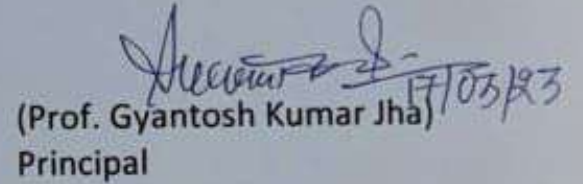 17/03/23
(Prof. Gyantosh Kumar Jha)
Principal